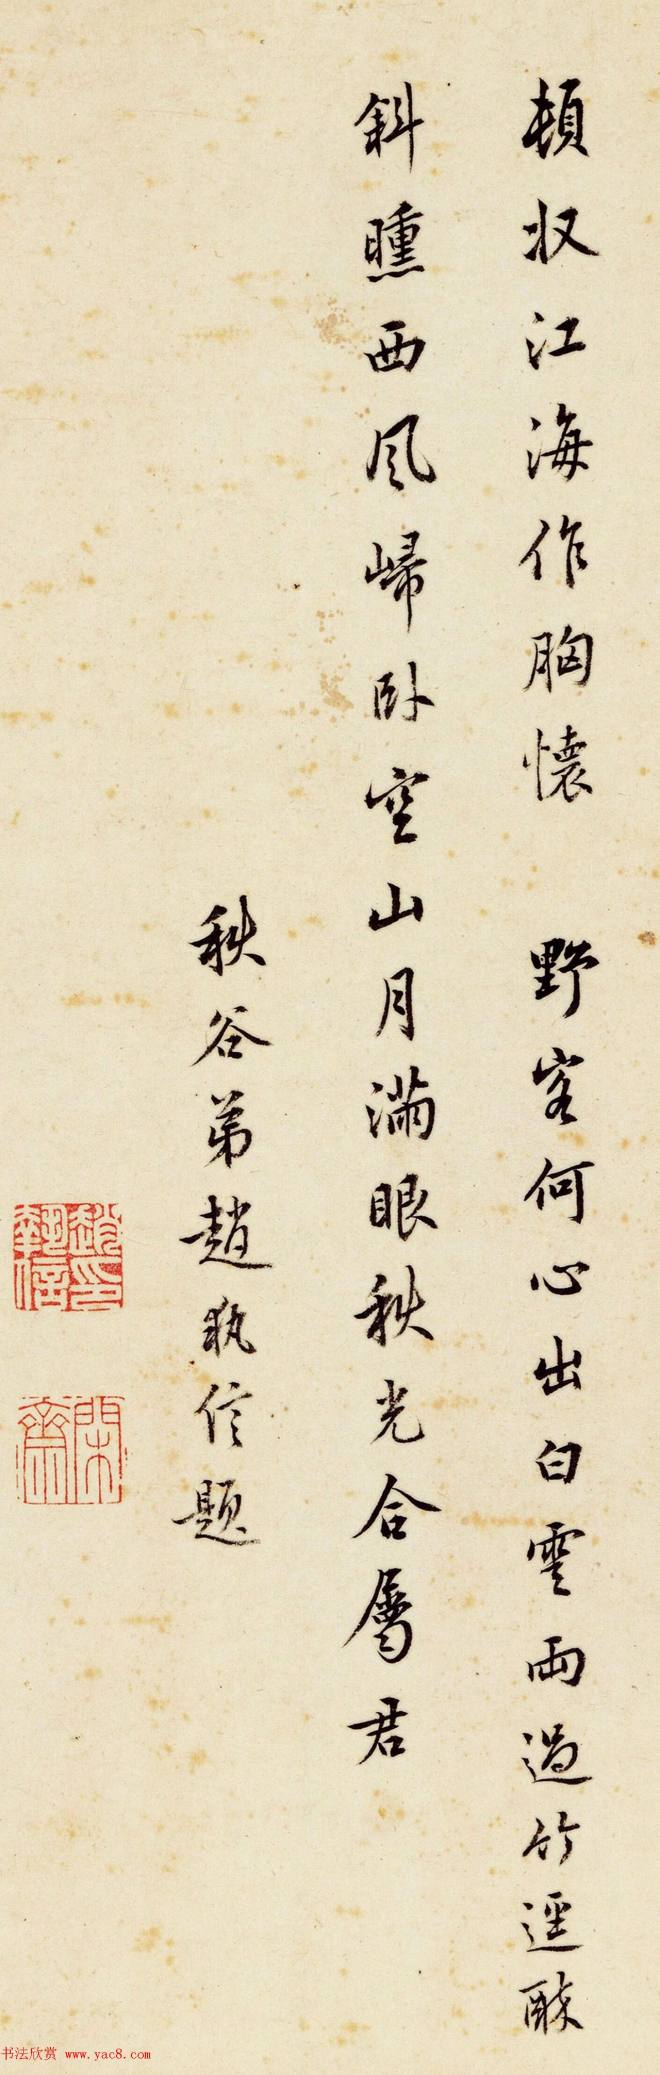 頓收江海作胸懷 野客何心出白雲雨過竹逕醉
斜曛西風歸卧空山月滿眼秋光合屬君
秋谷弟趙執信題
趙執信印
閑齋
书法欣赏 www.yac8.com